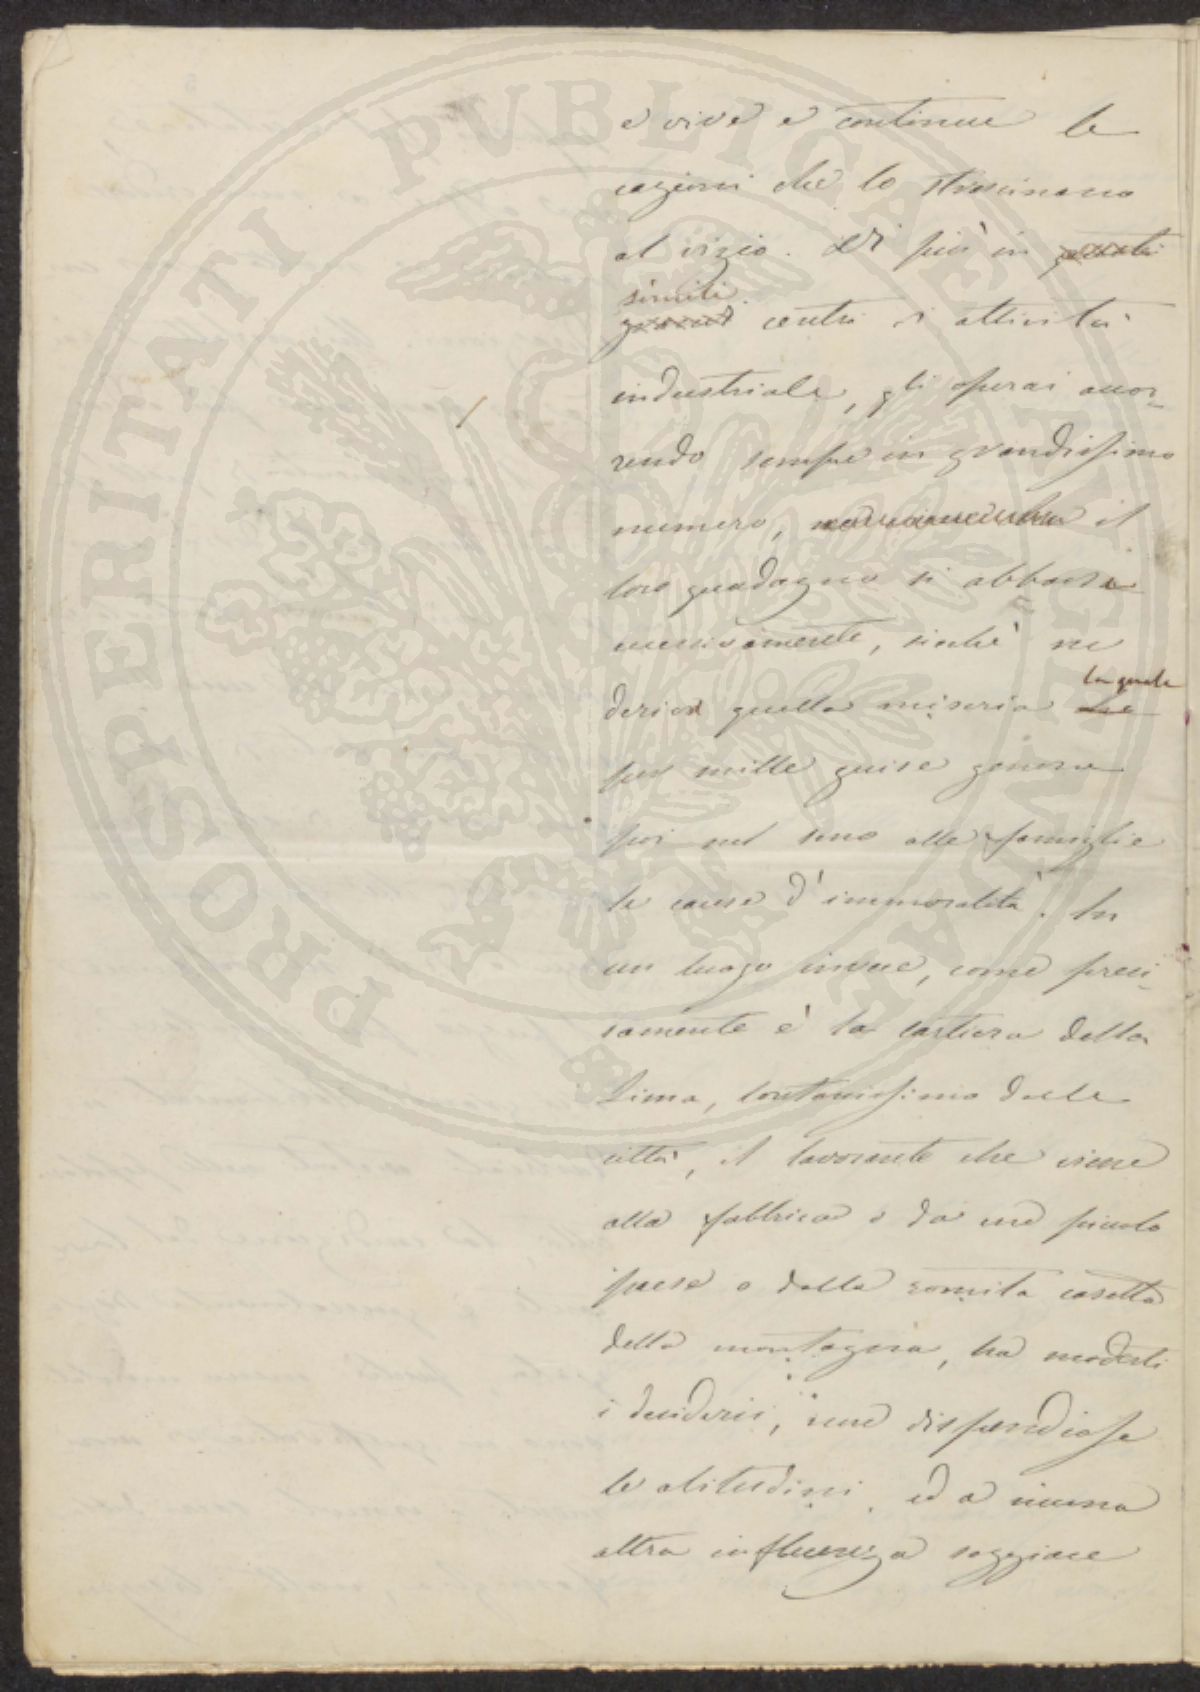 e vive e continue le
cagioni che lo strascinano
al vizio. Di più in
simili
centri di attività
industriale, gli operai accor-
rendo sempre in grandissimo
numero, il
loro guadagno si abbassa
eccessivamente, sicchè ne
deriva quella miseria la quale
per mille guise genera
poi nel seno alle famiglie
le cause d'immoralità. In
un luogo invece, come preci-
samente è la cartiera della
Lima, lontanissimo dalle
città, il lavorante che viene
alla fabbrica o da un piccolo
paese o dalla romita casetta
della montagna, ha modesti
i desiderii, non dispendiose
le abitudini, ed a nessuna
altra influenza soggiace
PROSPERITATI PVBLICAE AVGENDAE